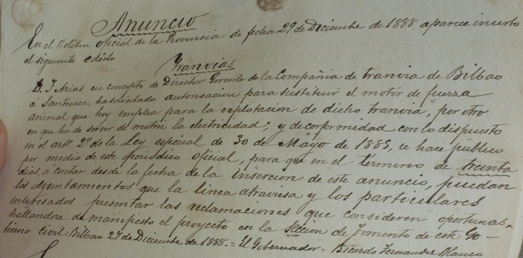 Anuncio
En el Boletin oficial de la Provincia de fecha 29 de Diciembre de 1888 aparece inserto
el siguiente edicto
Tranvias
D. J. Arias en concepto de Director Gerente de la Compañia de tranvia de Bilbao
á Santurce, ha solicitado autorizacion para sustituir el motor de fuerza
animal que hoy emplea para la explotacion de dicho tranvia, por otro
en que ha de servir de motor la electricidad; y de conformidad con lo dispuesto
en el artº 2º de la Ley especial de 30 de Mayo de 1888, se hace publico
por medio de este periodico oficial, para que en el termino de treinta
dias, á contar desde la fecha de la insercion de este anuncio, puedan
los Ayuntamientos que la linea atraviesa y los particulares
interesados presentar las reclamaciones que consideren oportunas
hallandose de manifiesto el proyecto en la Seccion de Fomento de este Go-
bierno Civil = Bilbao 27 de Diciembre de 1888. = El Gobernador. Ricardo Fernandez Blanco